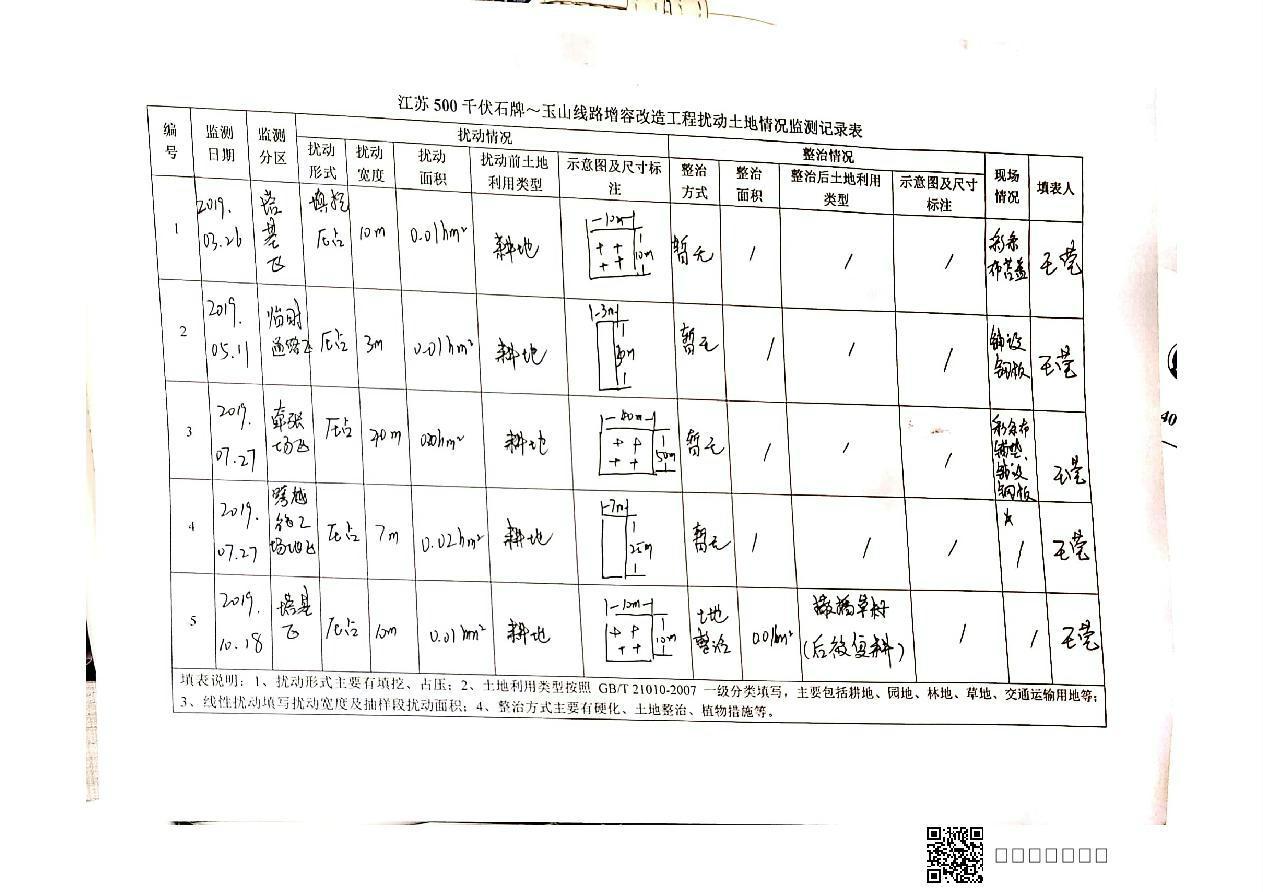 江苏 500 千伏石牌～玉山线路增容改造工程扰动土地情况监测记录表
编号 监测日期 监测分区 扰动情况 整治情况 现场情况 填表人
扰动形式 扰动宽度 扰动面积 扰动前土地利用类型 示意图及尺寸标注 整治方式 整治面积 整治后土地利用类型 示意图及尺寸标注
1 2019.03.26 塔基区 填挖 压占 10m 0.01hm² 耕地 10m 10m 暂无 / / / 彩条布苫盖 王莹
2 2019.05.11 临时道路区 压占 3m 0.01hm² 耕地 3m 暂无 / / / 铺设钢板 王莹
3 2019.07.27 牵张场区 压占 耕地 50m 暂无 / / / 彩条布铺垫、铺设钢板 王莹
4 2019.07.27 跨越施工场地区 压占 7m 0.02hm² 耕地 7m 25m 暂无 / / / / 王莹
5 2019.10.18 塔基区 压占 10m 0.01hm² 耕地 10m 10m 土地整治 0.01hm² 撒播草籽(后被复耕) / / 王莹
填表说明：1、扰动形式主要有填挖、占压；2、土地利用类型按照 GB/T 21010-2007 一级分类填写，主要包括耕地、园地、林地、草地、交通运输用地等；
3、线性扰动填写扰动宽度及抽样段扰动面积；4、整治方式主要有硬化、土地整治、植物措施等。